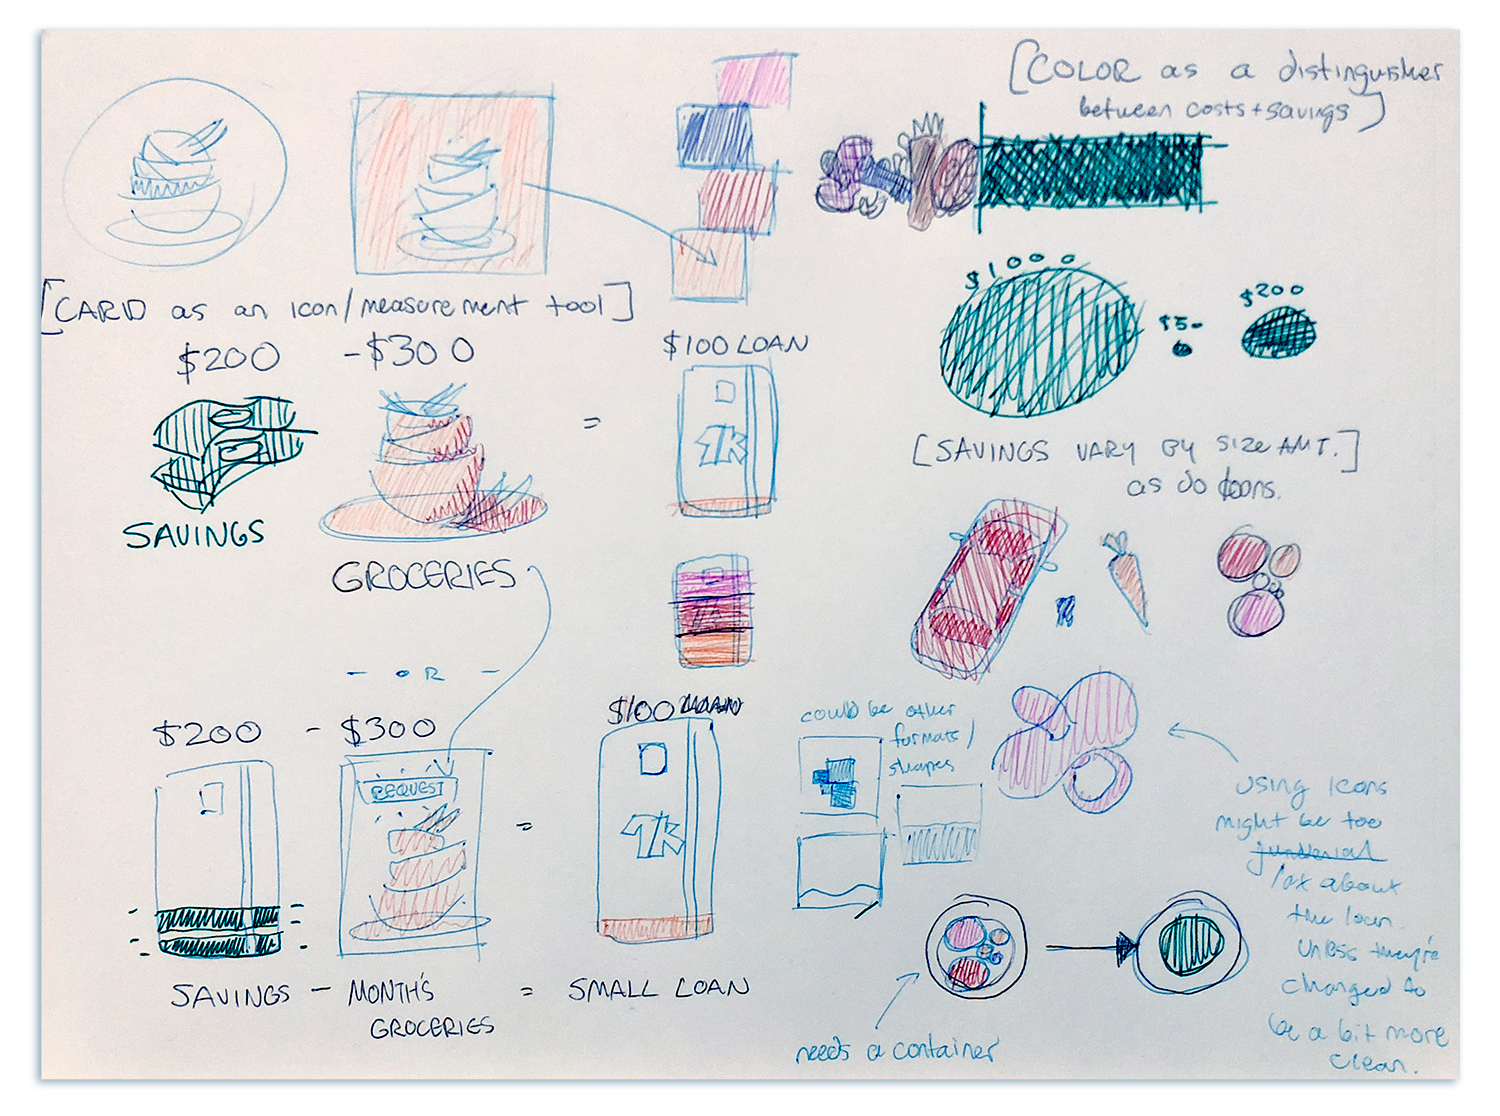 [COLOR as a distinguisher
between costs+savings]
[CARD as an icon/measurement tool]
$200 -$300
= $100 LOAN
1k
SAVINGS
GROCERIES
- OR -
$200 - $300
REQUEST
=
$100
1k
SAVINGS - MONTH'S
GROCERIES
= SMALL LOAN
$1000
$50
$200
[SAVINGS VARY BY SIZE AMT.]
as do loans.
could be other
formats/
shapes
using icons
might be too
lax about
the loan.
Unless they're
changed to
be a bit more
clean.
needs a container